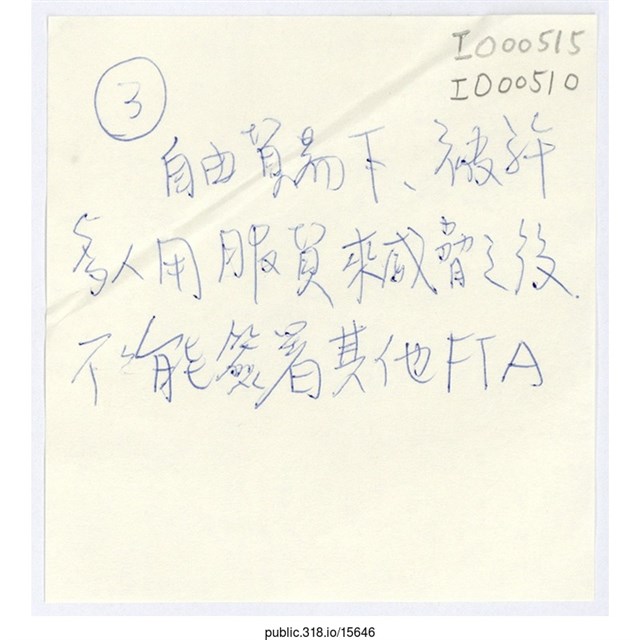 IO00515
IO00510
3
自由貿易下、被許
多人用服貿來威脅之後
不能簽署其他FTA
public.318.io/15646